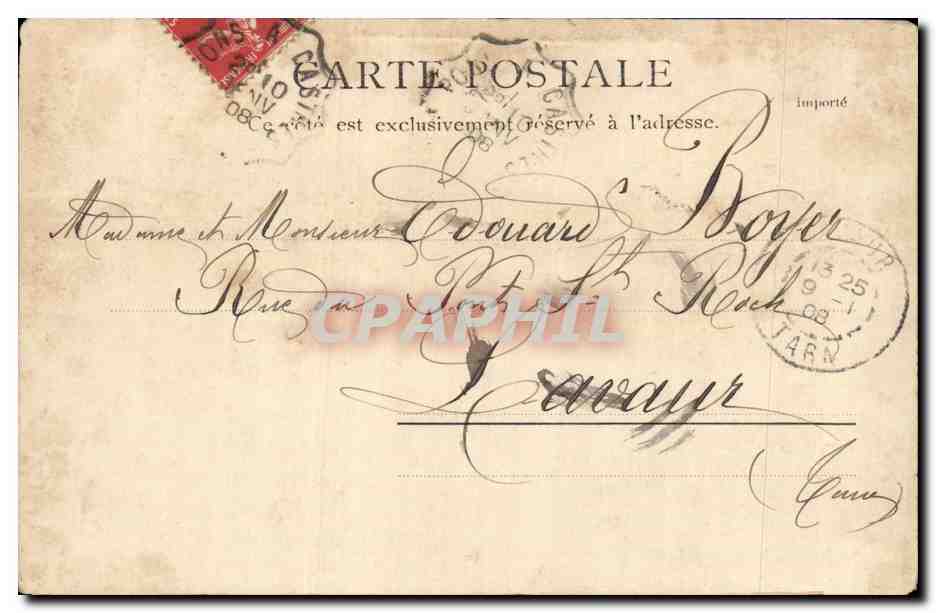 CARTE POSTALE
importé
Ce côté est exclusivement réservé à l'adresse.
Madame et Monsieur Edouard Boyer
Rue du Pont St Roch
Lavaur
(Tarn)
CPAPHIL
13 25
9 -1
08
TARN
10
08
CAST